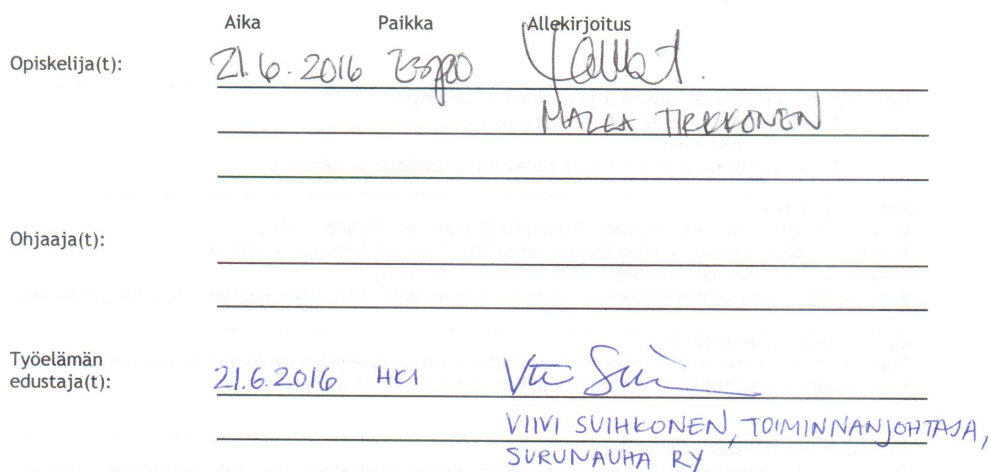 Aika Paikka Allekirjoitus
Opiskelija(t): 21.6.2016 Espoo
MALLA TIRKKONEN
Ohjaaja(t):
Työelämän
edustaja(t): 21.6.2016 HKI
VIIVI SUIHKONEN, TOIMINNANJOHTAJA,
SURUNAUHA RY